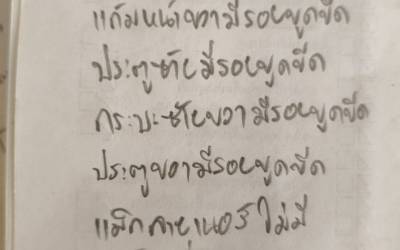 แก้มหน้าขวามีรอยขูดขีด
ประตูซ้ายมีรอยขูดขีด
กระบะซ้ายขวามีรอยขูดขีด
ประตูขวามีรอยขูดขีด
แม็กลายุเนอร์ไม่มี